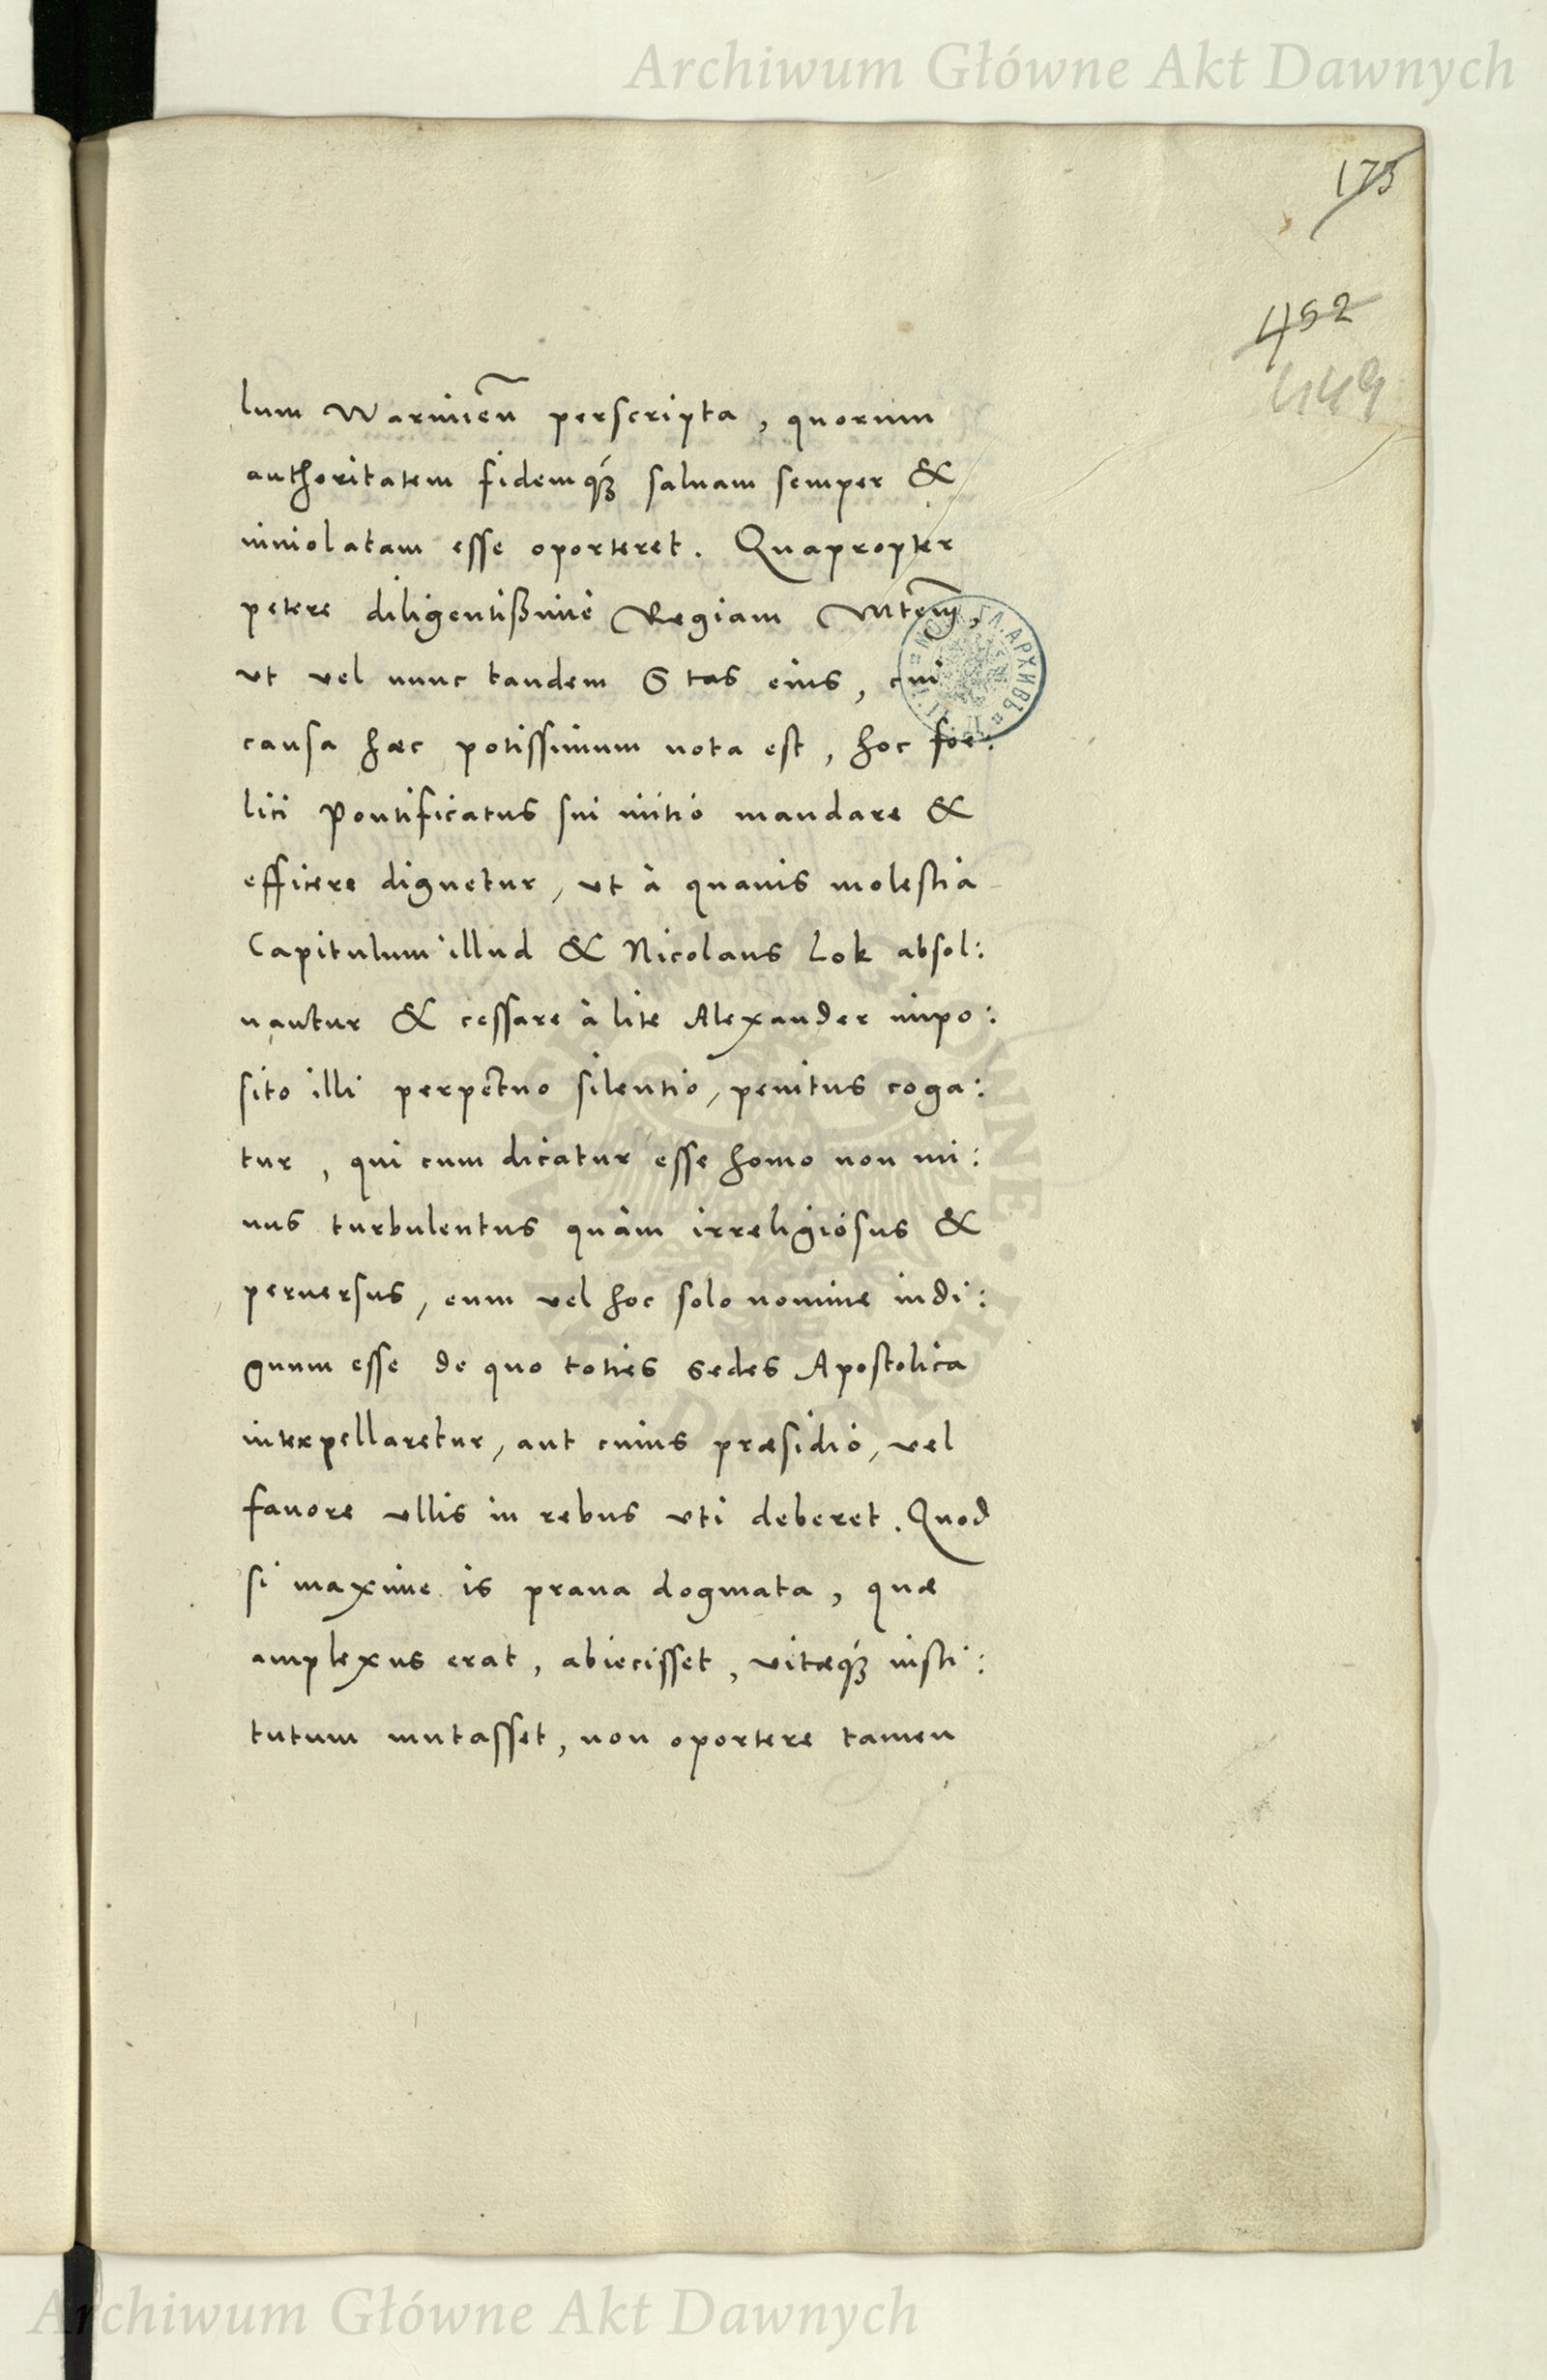 Archiwum Główne Akt Dawnych
173
452
449
lum Warmien̄ perscripta, quorum
authoritatem fidemq́ꝫ saluam semper &
inuiolatam esse oporteret. Quapropter
petere diligentißime Regiam Mtem̄,
ut vel nunc tandem S tas eius, cui
causa hæc potissimum nota est, hoc foe:
lici Pontificatus sui initio mandare &
efficere dignetur, ut à quauis molestia
Capitulum illud & Nicolaus Lok absol:
uantur & cessare à lite Alexander impo:
sito illi perpetuo silentio, penitus coga:
tur, qui cum dicatur esse homo non mi:
nus turbulentus quàm irreligiosus &
peruersus, eum vel hoc solo nomine indi:
gnum esse de quo toties sedes Apostolica
interpellaretur, aut cuius præsidio, vel
fauore ullis in rebus uti deberet. Quod
si maxime is praua dogmata, quæ
amplexus erat, abiecisset, vitæq́ꝫ insti:
tutum mutasset, non oportere tamen
Archiwum Główne Akt Dawnych